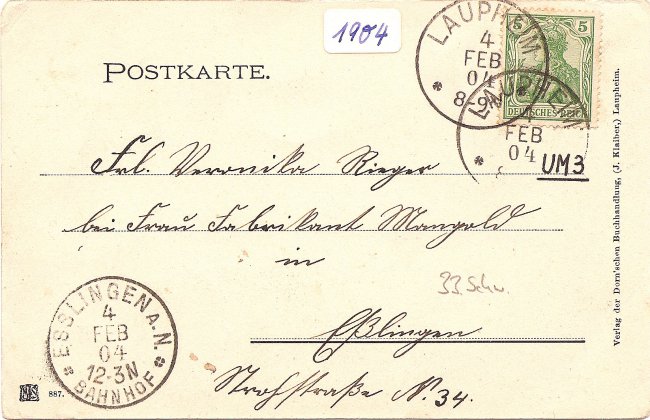 1904
POSTKARTE.
LAUPHEIM
4
FEB
04
8-9N
5 5
DEUTSCHES REICH
LAUPHEIM
4
FEB
04
UM3
Frl. Veronika Rieger
bei Frau Fabrikant Mangold
in
33 Schw.
Eßlingen
Strohstraße No. 34.
ESSLINGEN A.N.
4
FEB
04
12-3N
BAHNHOF
887.
Verlag der Dorn'schen Buchhandlung, (J. Klaiber,) Laupheim.